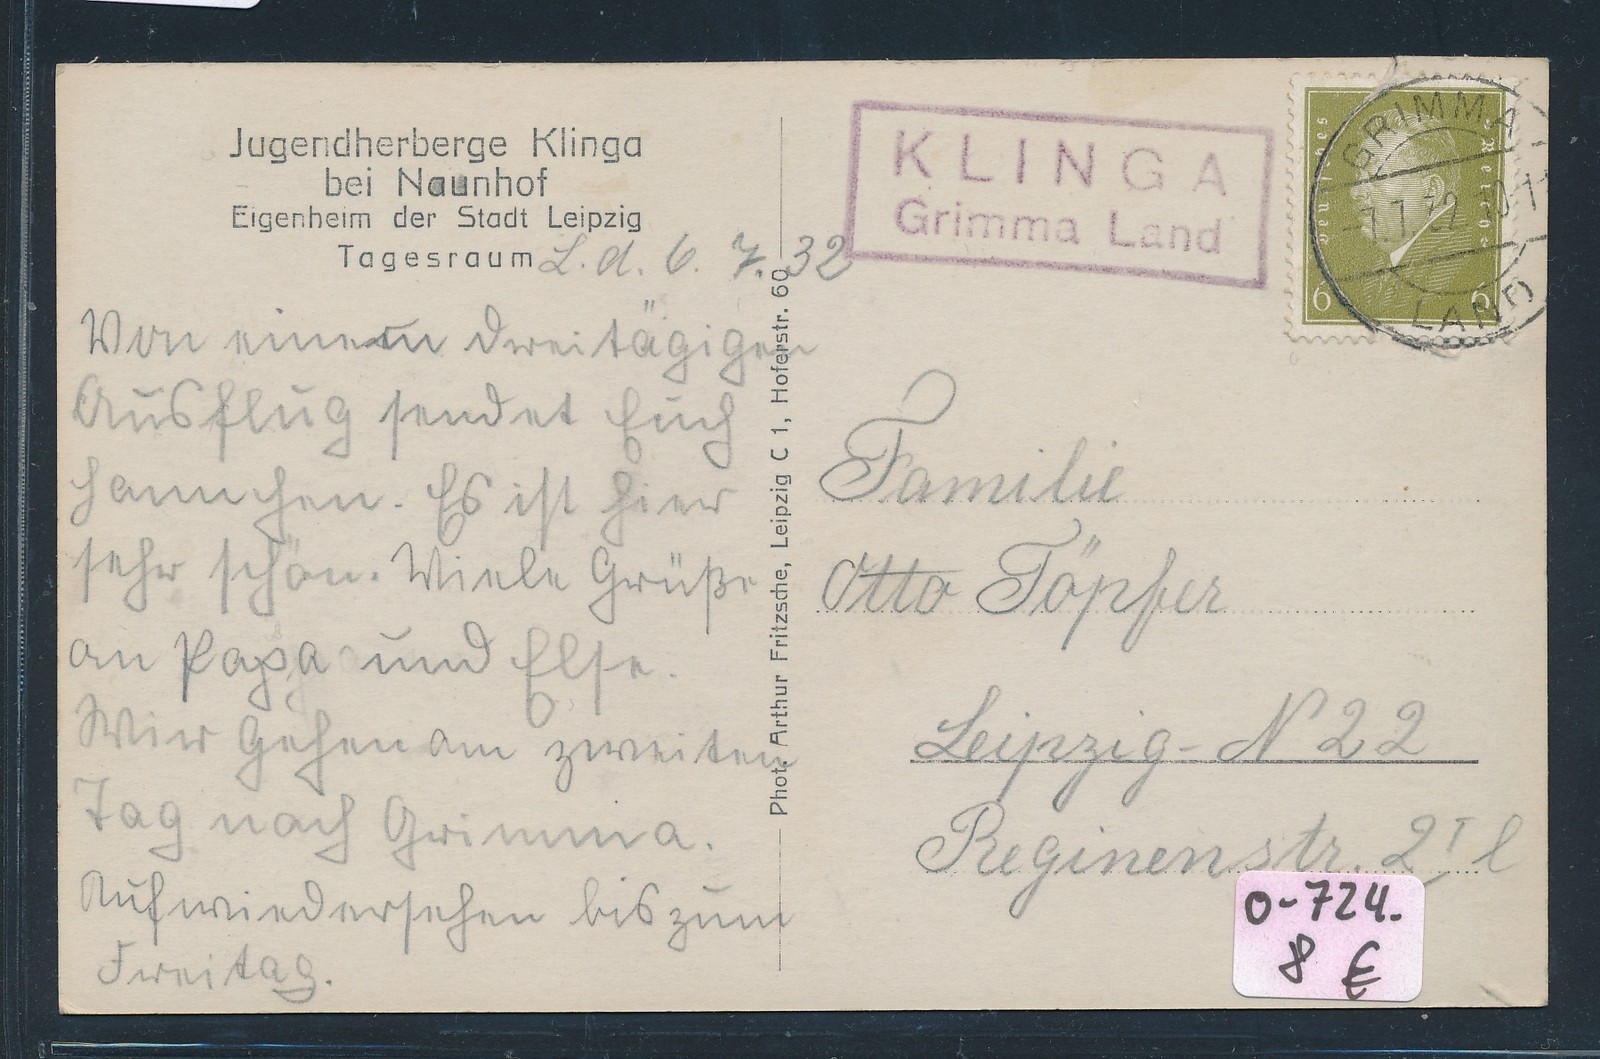 Jugendherberge Klinga
bei Naunhof
Eigenheim der Stadt Leipzig
Tagesraum L. d. 6. 7. 32
Von einem dreitägigen
Ausflug sendet Euch
Hannchen. Es ist hier
sehr schön. Viele Grüße
an Papa und Else.
Wier Gehen am zweiten
Tag nach Grimma.
Aufwiedersehen bis zum
Freitag.
Phot. Arthur Fritzsche, Leipzig C 1, Hoferstr. 60
KLINGA
Grimma Land
Deutsches Reich
6 6
GRIMMA
-7.7.32
LAND
Familie
Otto Töpfer
Leipzig-N 22
Reginenstr. 2 I l
0-724.
8 €